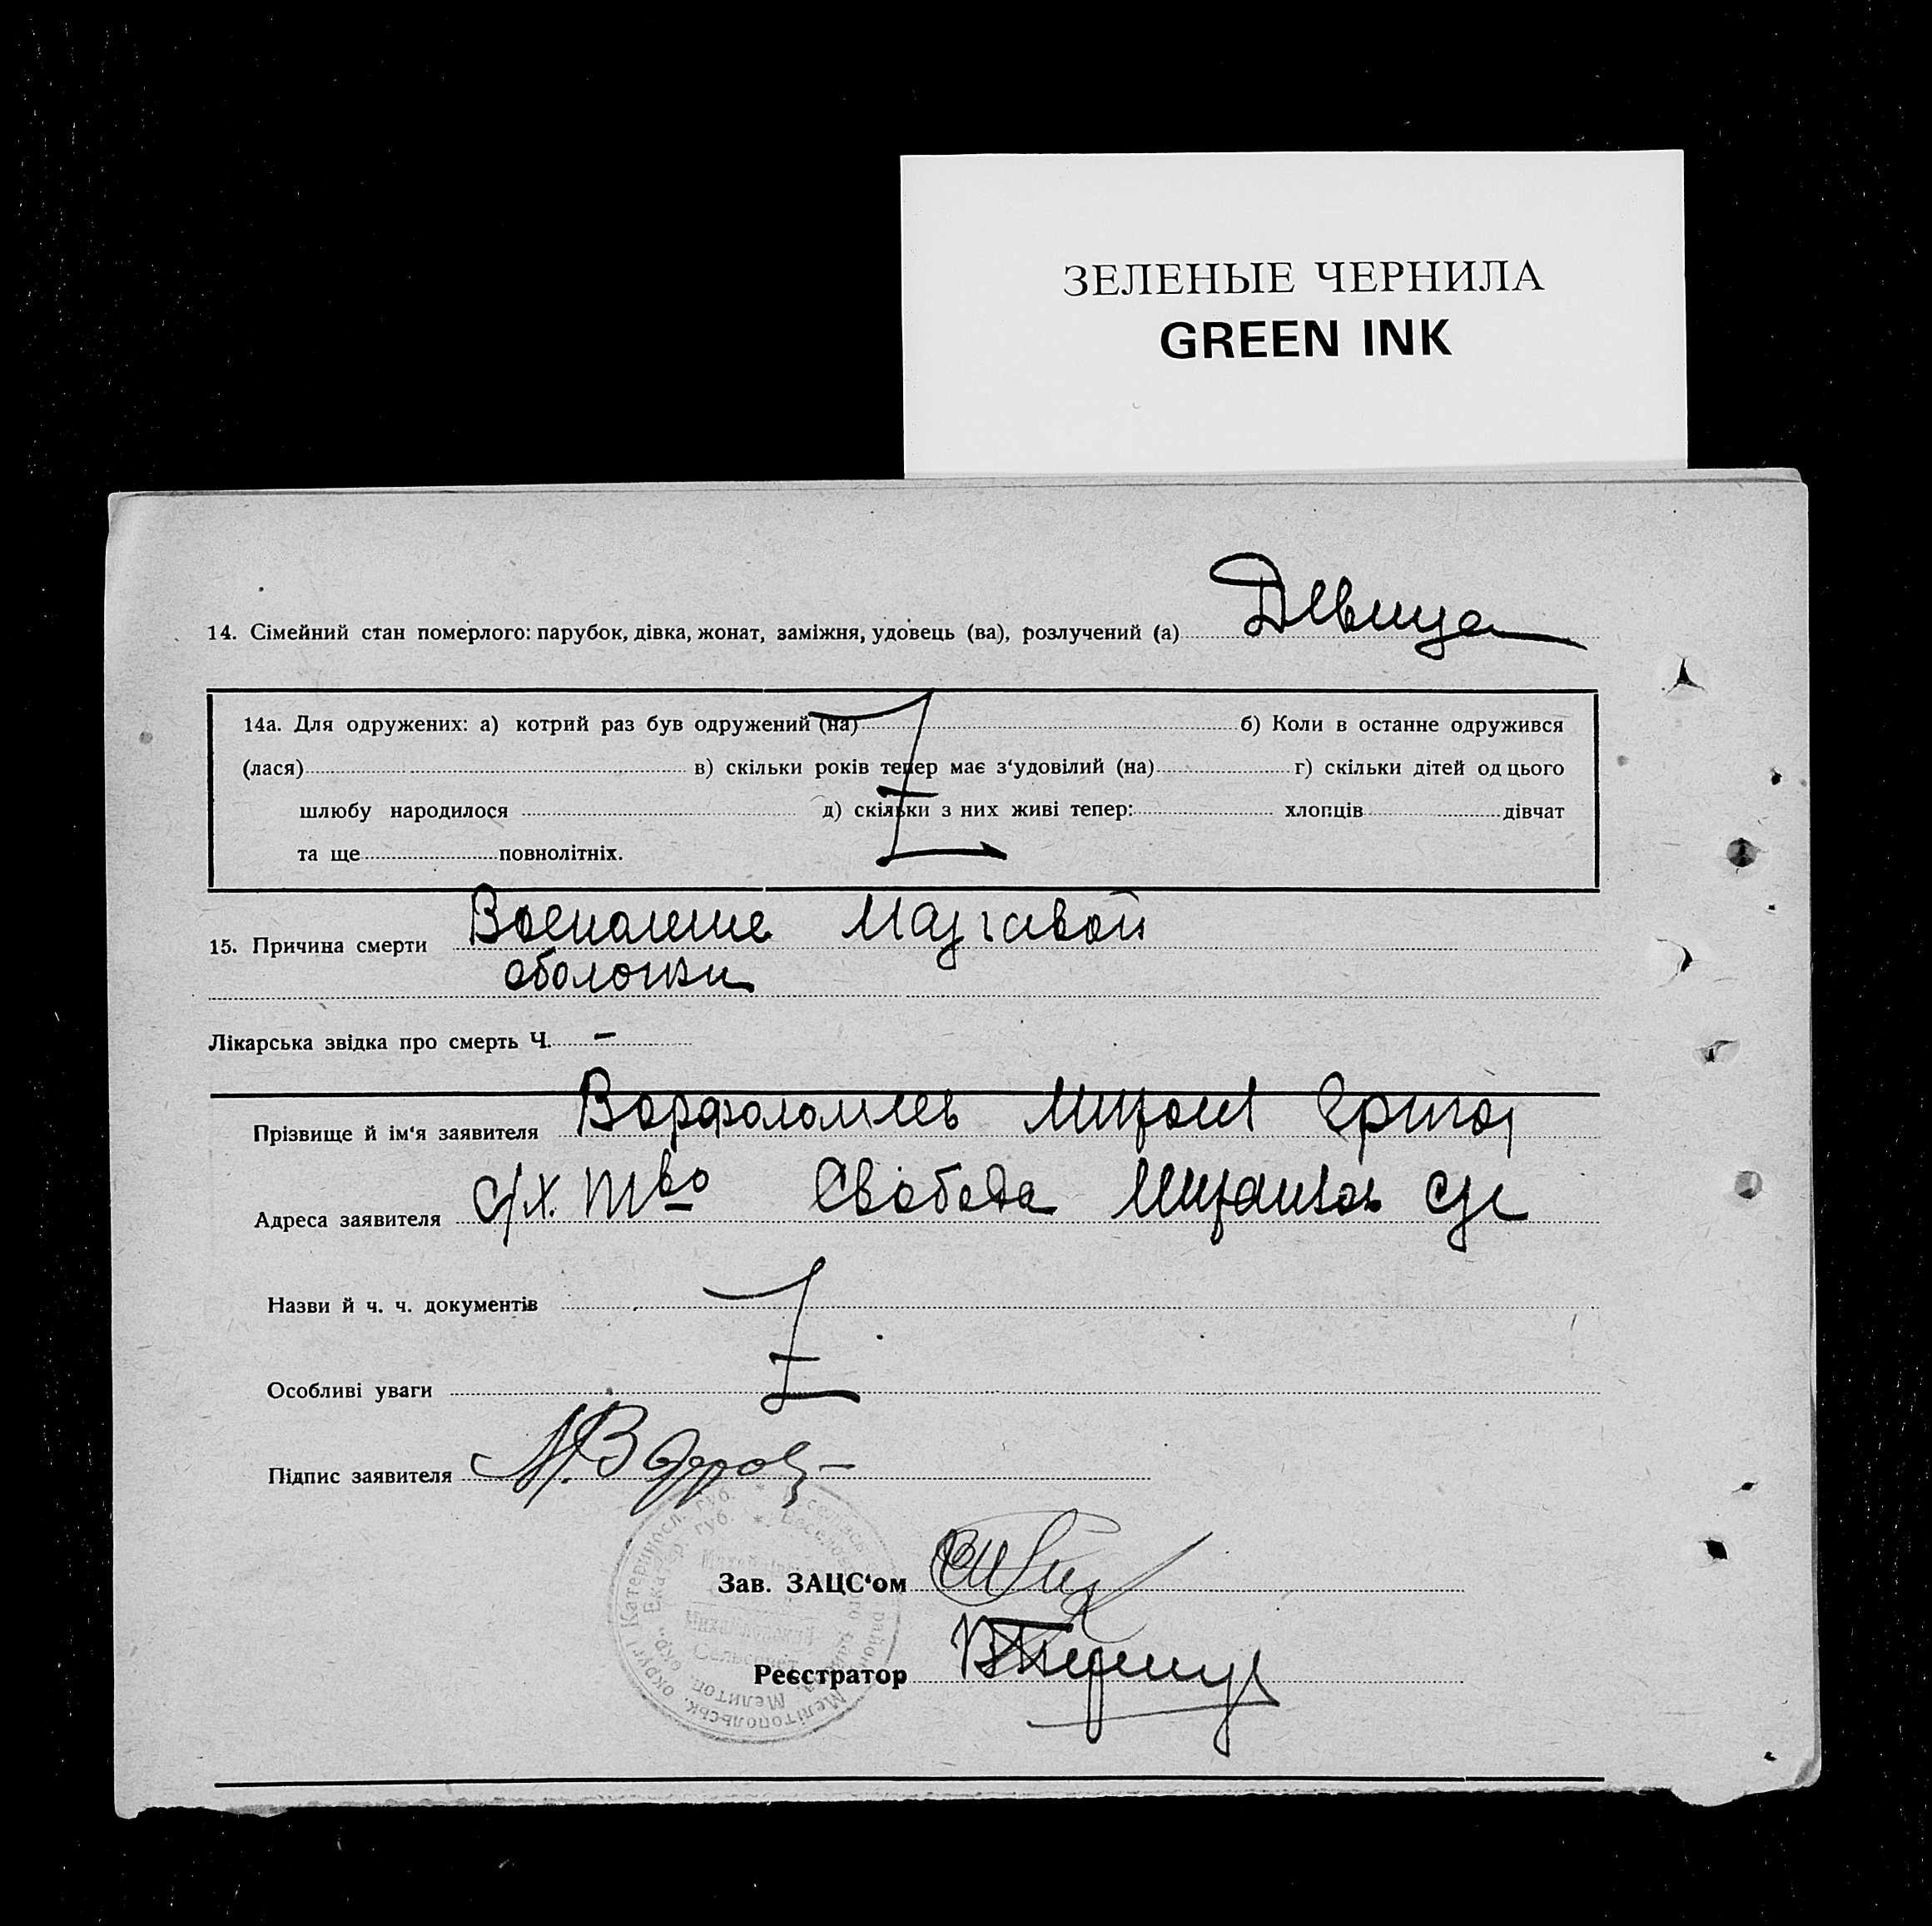 ЗЕЛЕНЫЕ ЧЕРНИЛА
GREEN INK
14. Сімейний стан померлого: парубок, дівка, жонат, заміжня, удовець (ва), розлучений (а) Девица
14а. Для одружених: а) котрий раз був одружений (на) б) Коли в останне одружився
(лася) в) скільки років тепер має з‘удовілий (на) г) скільки дітей од цього
шлюбу народилося д) скільки з них живі тепер: хлопців дівчат
та ще повнолітніх.
15. Причина смерти Воспаление Мозговой
оболочки
Лікарська звідка про смерть Ч. –
Прізвище й ім‘я заявителя Варфоломеев
Адреса заявителя с/х. тво Свобода
Назви й ч. ч. документів
Особливі уваги
Підпис заявителя
Зав. ЗАЦС‘ом
Реєстратор
Михайловский
Сельсовет